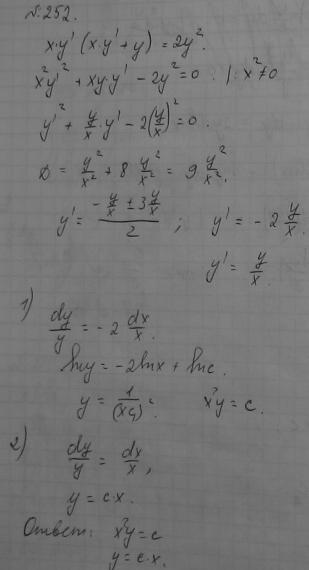 №252.
x·y' (x·y' + y) = 2y².
x²y'² + xy·y' − 2y² = 0 : | : x² ≠ 0
y'² + y/x · y' − 2(y/x)² = 0.
D = y²/x² + 8 y²/x² = 9 y²/x².
y' = (−y/x ± 3y/x)/2 ; y' = −2 y/x.
y' = y/x.
1) dy/y = −2 dx/x.
lny = −2lnx + lnc.
y = 1/(xc₁)². x²y = c.
2) dy/y = dx/x,
y = c·x.
Ответ: x²y = c
y = c·x.